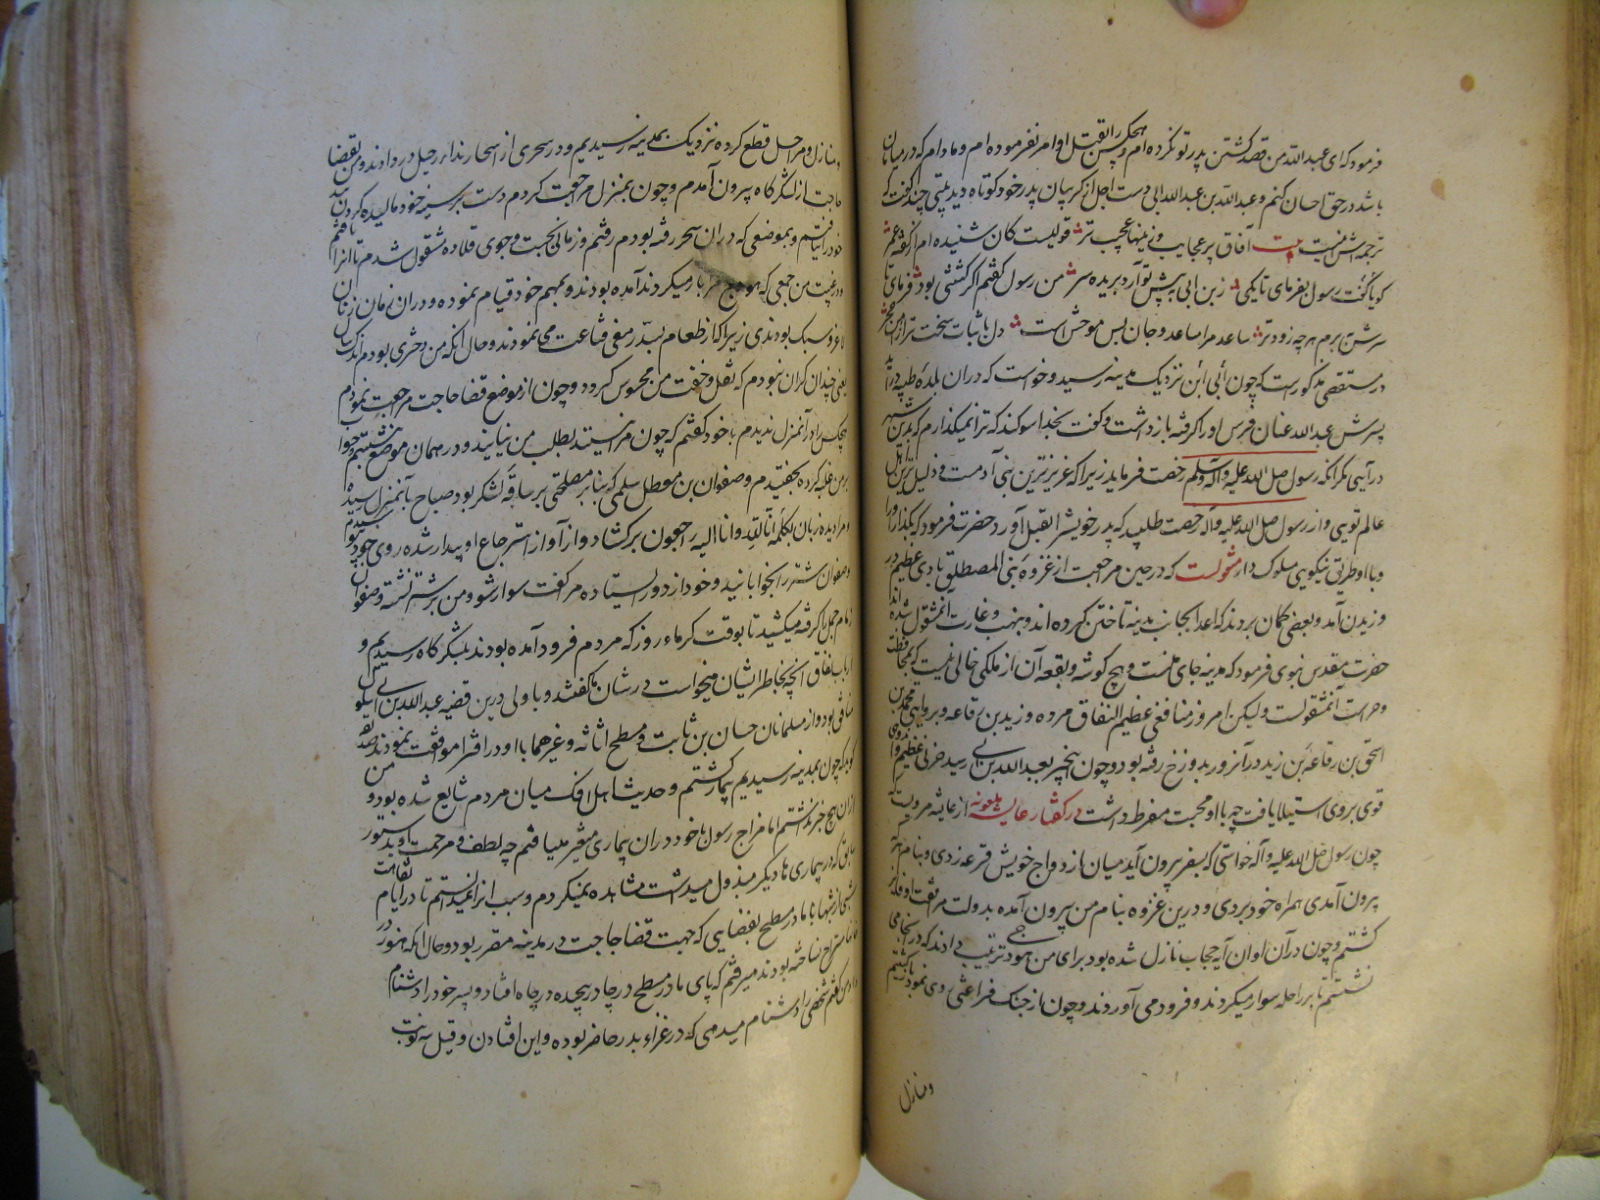 فرمود که ای عبدالله من قصد کشتن پدر تو نکرده ام و هیچکس را بقتل او امر نفرموده ام و مادام که در میان ما
باشد در حق او احسان کنم و عبدالله بن عبدالله ابی دست اجل از گریبان پدر خود کوتاه دید بیتی چند گفت که
ترجمه اش اینست بیت آفاق پر عجایب وزینها عجب تر قولیست کان شنیده ام از گفته عمر
گویا گفت رسول بفرمای تا یکی زین ابی پیش تو آرد بریده سر من رسول گفتم اگر کشتنی بود فرمای تا
سرش ببرم هر چه زودتر ساعد مرا مساعد و جان بس موحش است دل با ثبات سخت تر از
در مستقصی مذکورست که چون ابی ابن نزدیک مدینه رسید و خواست که دران بلده طیبه درآید
پسرش عبدالله عنان فرس او را گرفته بازداشت و گفت بخدا سوکند که ترا نمیگذارم که بدین شهر
درآیی مگر آنکه رسول صلی الله علیه وآله وسلم رخصت فرماید زیرا که عزیزترین بنی آدمست و ذلیل ترین اهل
عالم تویی و از رسول صلی الله علیه وآله رخصت طلبید که پدر خویش را بقتل آورد حضرت فرمود که بگذار او را
و با او طریق نیکویی سلوک دار منقولست که در حین مراجعت از غزوه بنی المصطلق بادی عظیم در
وزیدن آمد و بعضی گمان بردند که اعدا بجانب مدینه تاختن کرده اند و بنهب و غارت آن مشغول شده اند
حضرت مقدس نبوی فرمود که مدینه جای منست و هیچ گوشه و بقعه آن از ملکی خالی نیست که بمحافظت
و حراست آن مشغولست ولیکن امروز منافقی عظیم النفاق مرده و زید بن رفاعه و بروایتی محمد بن
اسحق بن رفاعه بن زید در آنروز بدوزخ رفته بود و چون این خبر بعبدالله بن ابی رسید حزنی عظیم و اندوهی
قوی بروی استیلا یافت چه با او محبت مفرط داشت در گفتار عایشه ملعونه از عایشه مرویست
چون رسول صلی الله علیه وآله خواستی که بسفر بیرون آید میان ازدواج خویش قرعه زدی و بنام هر که
بیرون آمدی همراه خود بردی و درین غزوه بنام من بیرون آمده بدولت مرافقت او فائز
گشتم و چون در آن اوان آیه حجاب نازل شده بود برای من هودجی ترتیب دادند که در انجا می
نشستم تا بر راحله سوار میکردند و فرود می آوردند و چون از جنک فراغتی روی نمود بازگشتیم
و منازل
و منازل و مراحل قطع کرده نزدیک بمدینه رسیدیم و در سحری از اسحار ندا رحیل در دادند و من بقضا
حاجت از لشکرگاه بیرون آمدم و چون بمنزل مراجعت کردم دست بر سینه خود مالیده گردن بند
خود را نیافتم و بموضعی که دران سحر رفته بودم رفتم و زمانی بجست و جوی قلاده مشغول شدم تا انرا یافتم
و در غیبت من جمعی که هودج مرا بار میکردند آمده بودند و بمهم خود قیام نموده و دران زمان زنان
لاغر و سبک بودندی زیرا که از طعام بسد رمقی قناعت می نمودند و حال انکه من دختری بودم اندک سال
یعنی چندان گران نبودم که ثقل و خفت من محسوس گردد و چون از موضع قضا حاجت مراجعت نمودم
هیچکس را در آن منزل ندیدم با خود گفتم که چون مرا نبینند بطلب من بیایند و در همان موضع بنشستم و خواب
بر من غلبه کرده بخفتیدم و صفوان بن معطل سلمی که بنابر مصلحتی بر ساقه لشکر بود صباح بآن منزل رسیده
و مرا دیده زبان بکلمه انا لله و انا الیه راجعون برکشاد و از آواز استرجاع او بیدار شده روی خود پوشیدم
و صفوان شتر را بخوابانید و خود از دور ایستاده مرا گفت سوار شو و من بر شتر نشسته و صفوان
زمام جمل را گرفته میکشید تا بوقت گرماء روز که مردم فرود آمده بودند بلشکرگاه رسیدیم و
ارباب نفاق آنچه بخاطر ایشان میخواست در شان ما گفتند و بادی درین قضیه عبدالله بن ابی سلول
منافق بود و از مسلمانان حسان بن ثابت و مسطح اثاثه و غیرهما با او در افترا موافقت نمودند عایشه
گوید که چون بمدینه رسیدیم بیمار گشتم و حدیث اهل افک میان مردم شایع شده بود و من
ازان هیچ خبر نداشتم اما مزاج رسول با خود دران بیماری متغیر میافتم چه لطف و مرحمت که بدستور
سابق که در بیماری ها دیگر مبذول میداشت مشاهده نمیکردم و سبب انرا نمیدانستم تا در ایام نقاهت
شبی از شبها با مادر مسطح بفضایی که جهت قضا حاجت در مدینه مقرر بود و حال انکه هنوز در
خانها مستراح نساخته بودند میرفتم که پای مادر مسطح در چادر پیچیده در چاه افتاد و پسر خود را دشنام
داد من گفتم شخصی را دشنام میدهی که در غزاء بدر حاضر بوده و این افتادن و قیل سه نوبت